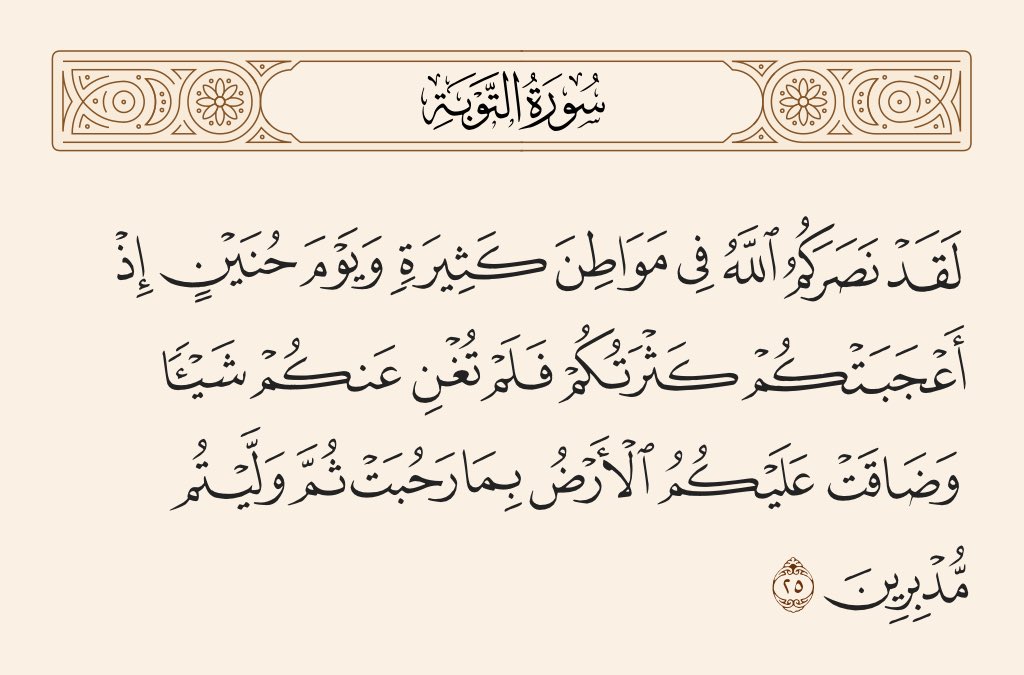 سُورَةُ التَّوْبَةِ
لَقَدْ نَصَرَكُمُ ٱللَّهُ فِى مَوَاطِنَ كَثِيرَةٍ وَيَوْمَ حُنَيْنٍ إِذْ
أَعْجَبَتْكُمْ كَثْرَتُكُمْ فَلَمْ تُغْنِ عَنكُمْ شَيْـًٔا
وَضَاقَتْ عَلَيْكُمُ ٱلْأَرْضُ بِمَا رَحُبَتْ ثُمَّ وَلَّيْتُم
مُّدْبِرِينَ ٢٥